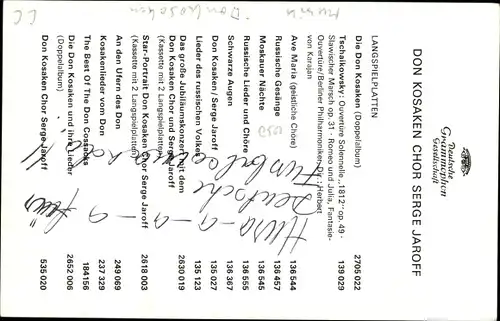 Deutsche
Grammophon
Gesellschaft
DON KOSAKEN CHOR SERGE JAROFF
LANGSPIELPLATTEN
Die Don Kosaken (Doppelalbum) 2705 022
Tschaikowsky: Ouvertüre Solennelle „1812“ op. 49 -
Slawischer Marsch op. 31 - Romeo und Julia, Fantasie-
Ouvertüre/Berliner Philharmoniker, Dir.: Herbert
von Karajan 139 029
Ave Maria (geistliche Chöre) 136 544
Russische Gesänge 136 457
Moskauer Nächte 136 545
Russische Lieder und Chöre 136 555
Schwarze Augen 136 367
Don Kosaken / Serge Jaroff 135 027
Lieder des russischen Volkes 135 123
Das große Jubiläumskonzert mit dem
Don Kosaken Chor und Serge Jaroff
(Kassette mit 2 Langspielplatten) 2630 019
Star-Portrait Don Kosaken Chor Serge Jaroff
(Kassette mit 2 Langspielplatten) 2618 003
An den Ufern des Don 249 069
Kosakenlieder vom Don 237 329
The Best Of The Don Cossacks 184 156
Die Don Kosaken und ihre Lieder
(Doppelalbum) 2652 006
Don Kosaken Chor Serge Jaroff 535 020
Hurra-a-a-a
Deutsche
Musik
Don Kosaken